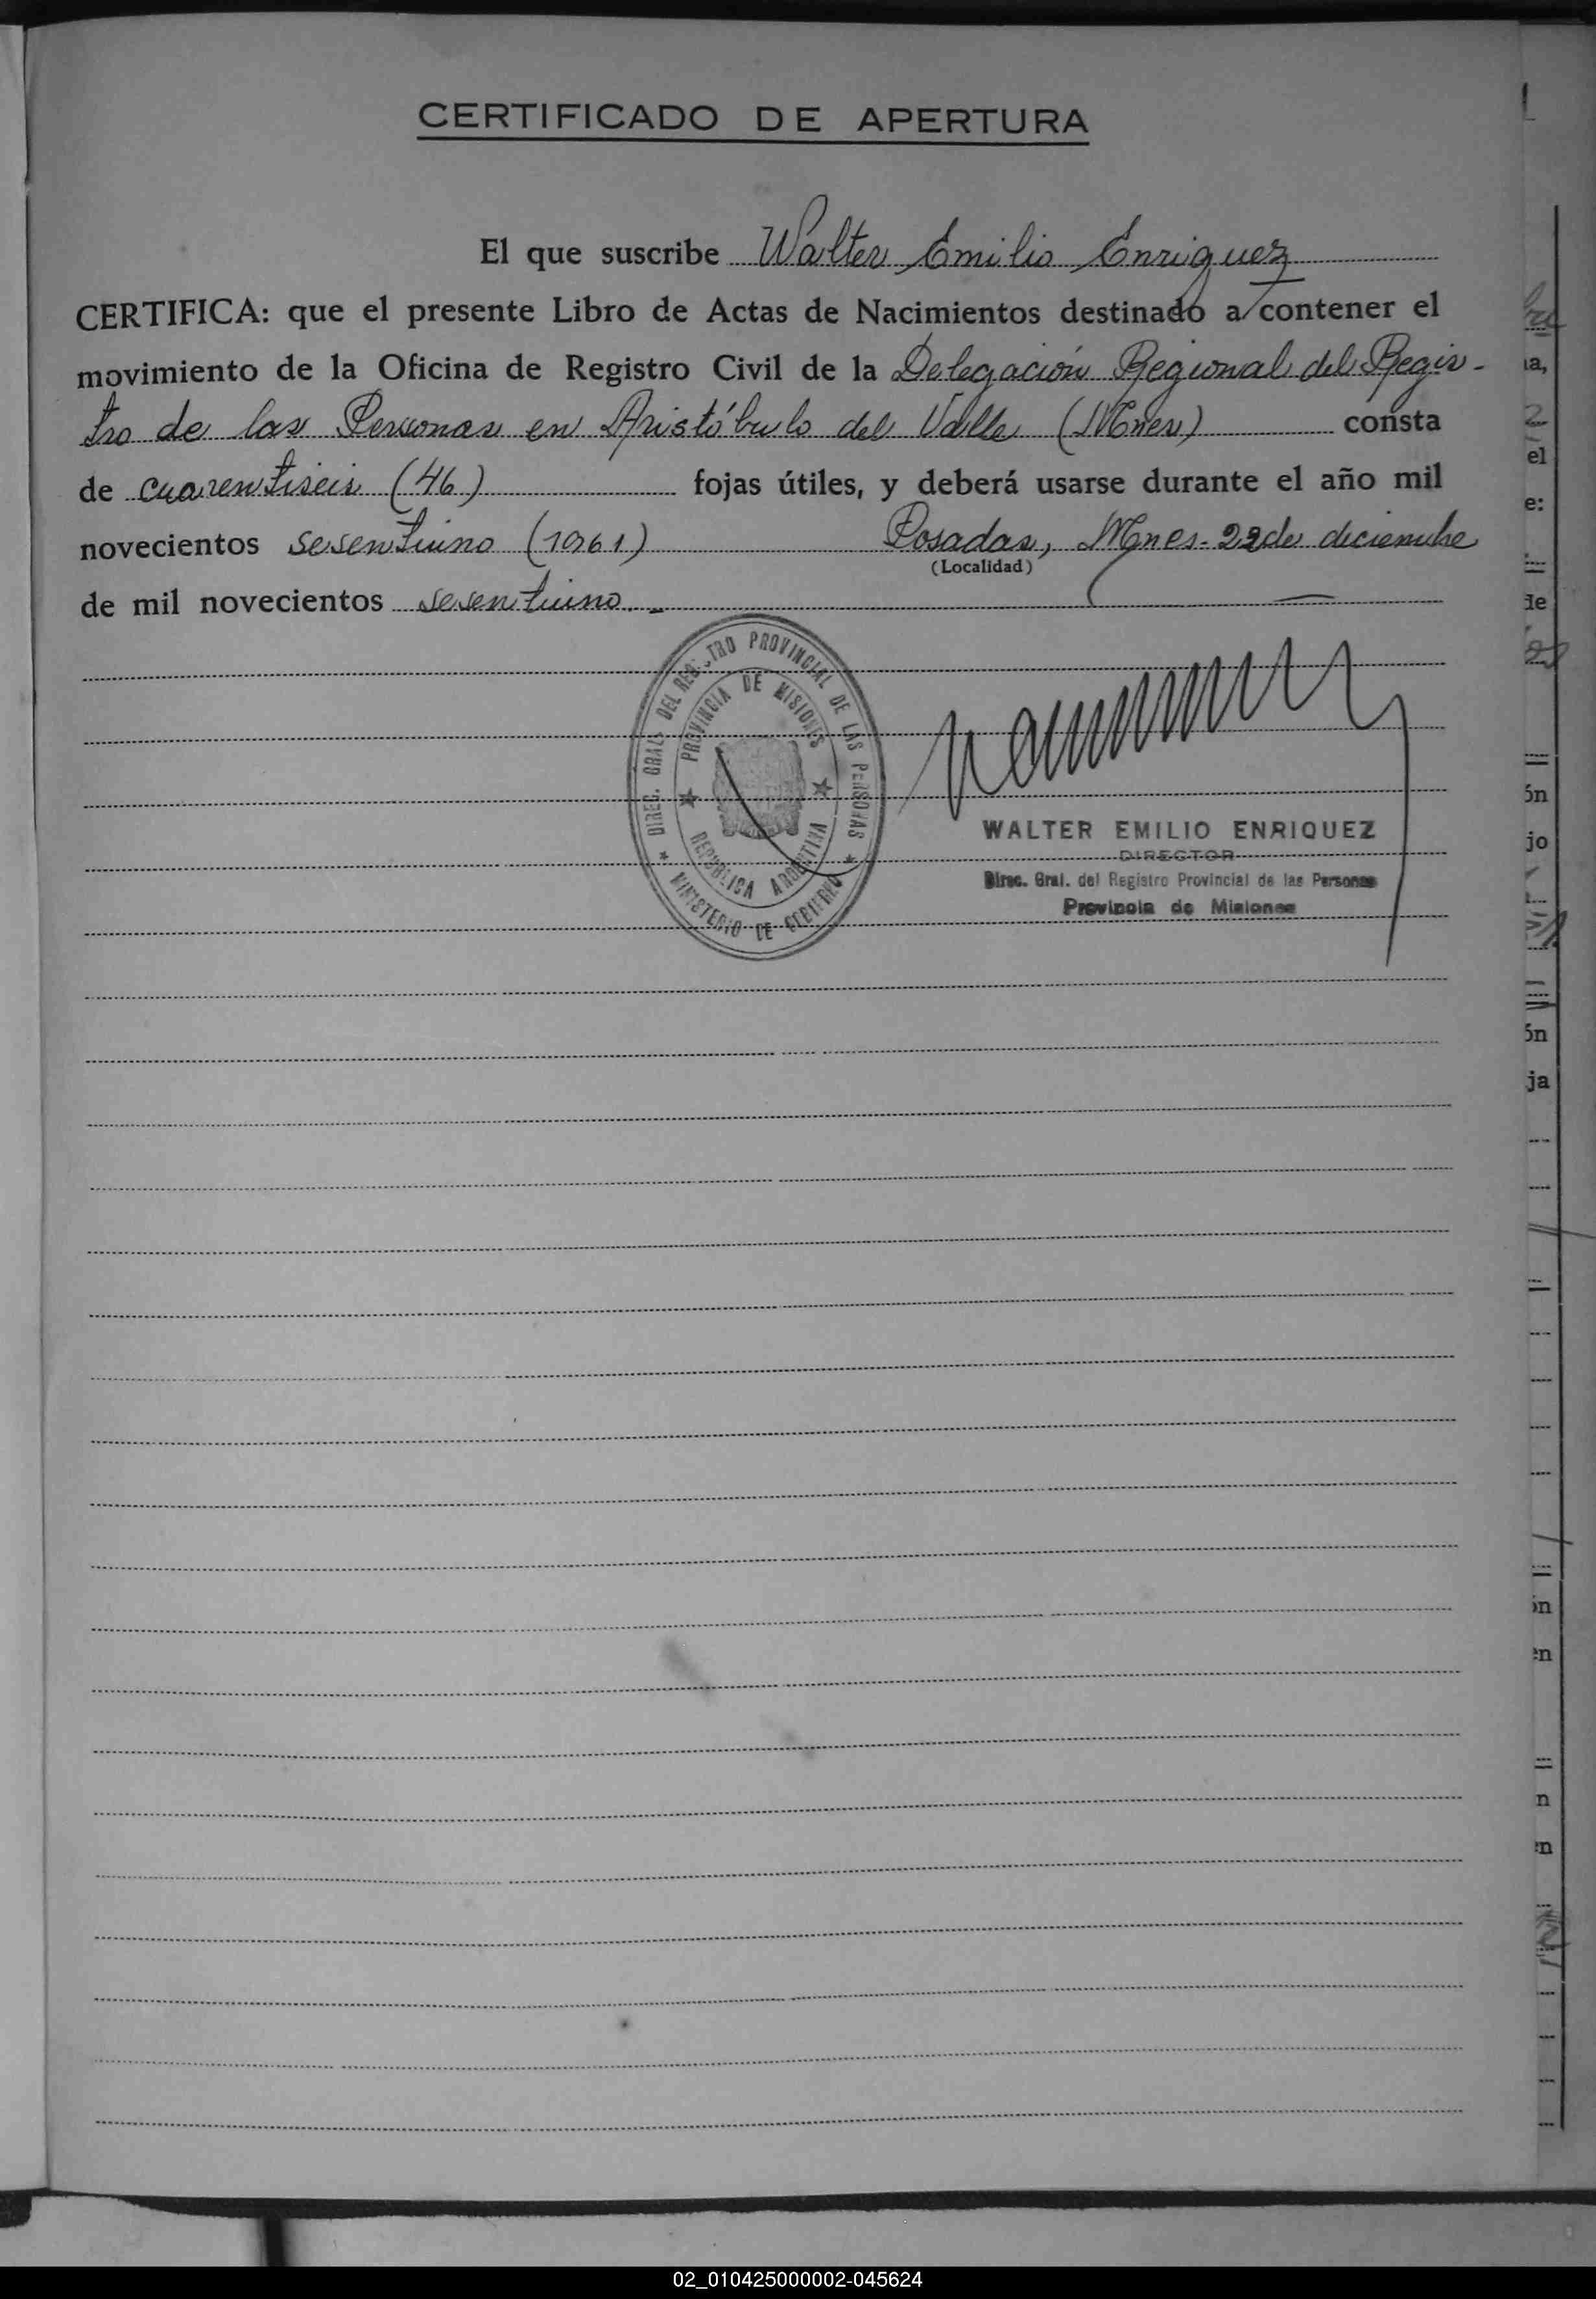 CERTIFICADO DE APERTURA
El que suscribe Walter Emilio Enriquez
CERTIFICA: que el presente Libro de Actas de Nacimientos destinado a contener el
movimiento de la Oficina de Registro Civil de la Delegación Regional del Regis-
tro de las Personas en Aristóbulo del Valle (Mnes) consta
de cuarentiseis (46) fojas útiles, y deberá usarse durante el año mil
novecientos sesentiuno (1961) Posadas, Mnes. 22 de diciembre
(Localidad)
de mil novecientos sesentiuno.-
DIREC. GRAL. DEL REGISTRO PROVINCIAL DE LAS PERSONAS
PROVINCIA DE MISIONES
REPUBLICA ARGENTINA
MINISTERIO DE GOBIERNO
WALTER EMILIO ENRIQUEZ
DIRECTOR
Direc. Gral. del Registro Provincial de las Personas
Provincia de Misiones
a,
el
e:
de
ón
jo
ón
ja
ón
en
n
en
02_010425000002-045624